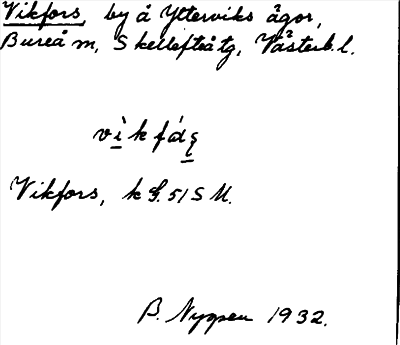 Vikfors, by å Ytterviks ägor,
Bureå m, Skellefteå tg, Västerb. l.
Vikfors, k G. 51 S U.
B. 1932.